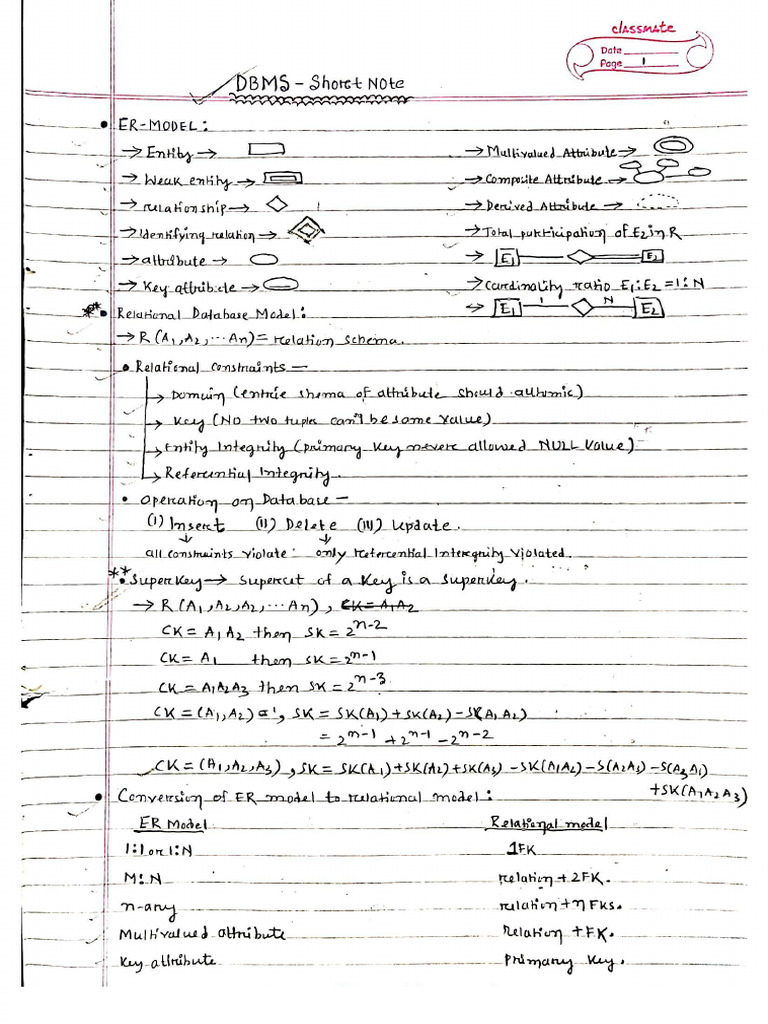 classmate
Date
Page 1
DBMS - Short Note
• ER-MODEL:
→ Entity →
→ Multivalued Attribute →
→ Weak entity →
→ Composite Attribute →
→ relationship →
→ Derived Attribute →
→ Identifying relation →
→ Total participation of E2 in R
→ attribute →
→ E1 E2
→ Key attribute →
→ Cardinality ratio E1:E2 = 1:N
→ E1 1 N E2
** • Relational Database Model:
→ R(A1, A2, ... An) = relation schema.
• Relational constraints —
→ Domain (entrie shema of attribute should automic)
→ Key (NO two tuples can't be same value)
→ Entity Integrity (primary Key never allowed NULL value)
→ Referential Integrity.
• Operation on Database —
(i) Insert (ii) Delete (iii) update.
all constraints violate: only referential Interqrity violated.
** • Superkey → supercut of a Key is a superkey.
→ R(A1, A2, A2, ... An), CK = A1A2
CK = A1A2 then SK = 2^n-2
CK = A1 then SK = 2^n-1
CK = A1A2A3 then SK = 2^n-3
CK = (A1, A2) , SK = SK(A1) + SK(A2) - SK(A1A2)
= 2^n-1 + 2^n-1 - 2^n-2
CK = (A1, A2, A3), SK = SK(A1) + SK(A2) + SK(A3) - SK(A1A2) - S(A2A3) - S(A3A1)
+ SK(A1A2A3)
• Conversion of ER model to relational model:
ER Model Relational model
1:1 or 1:N 1FK
M:N relation + 2FK.
n-ary relation + n FKs.
Multivalued attribute relation + FK.
Key attribute primary Key.